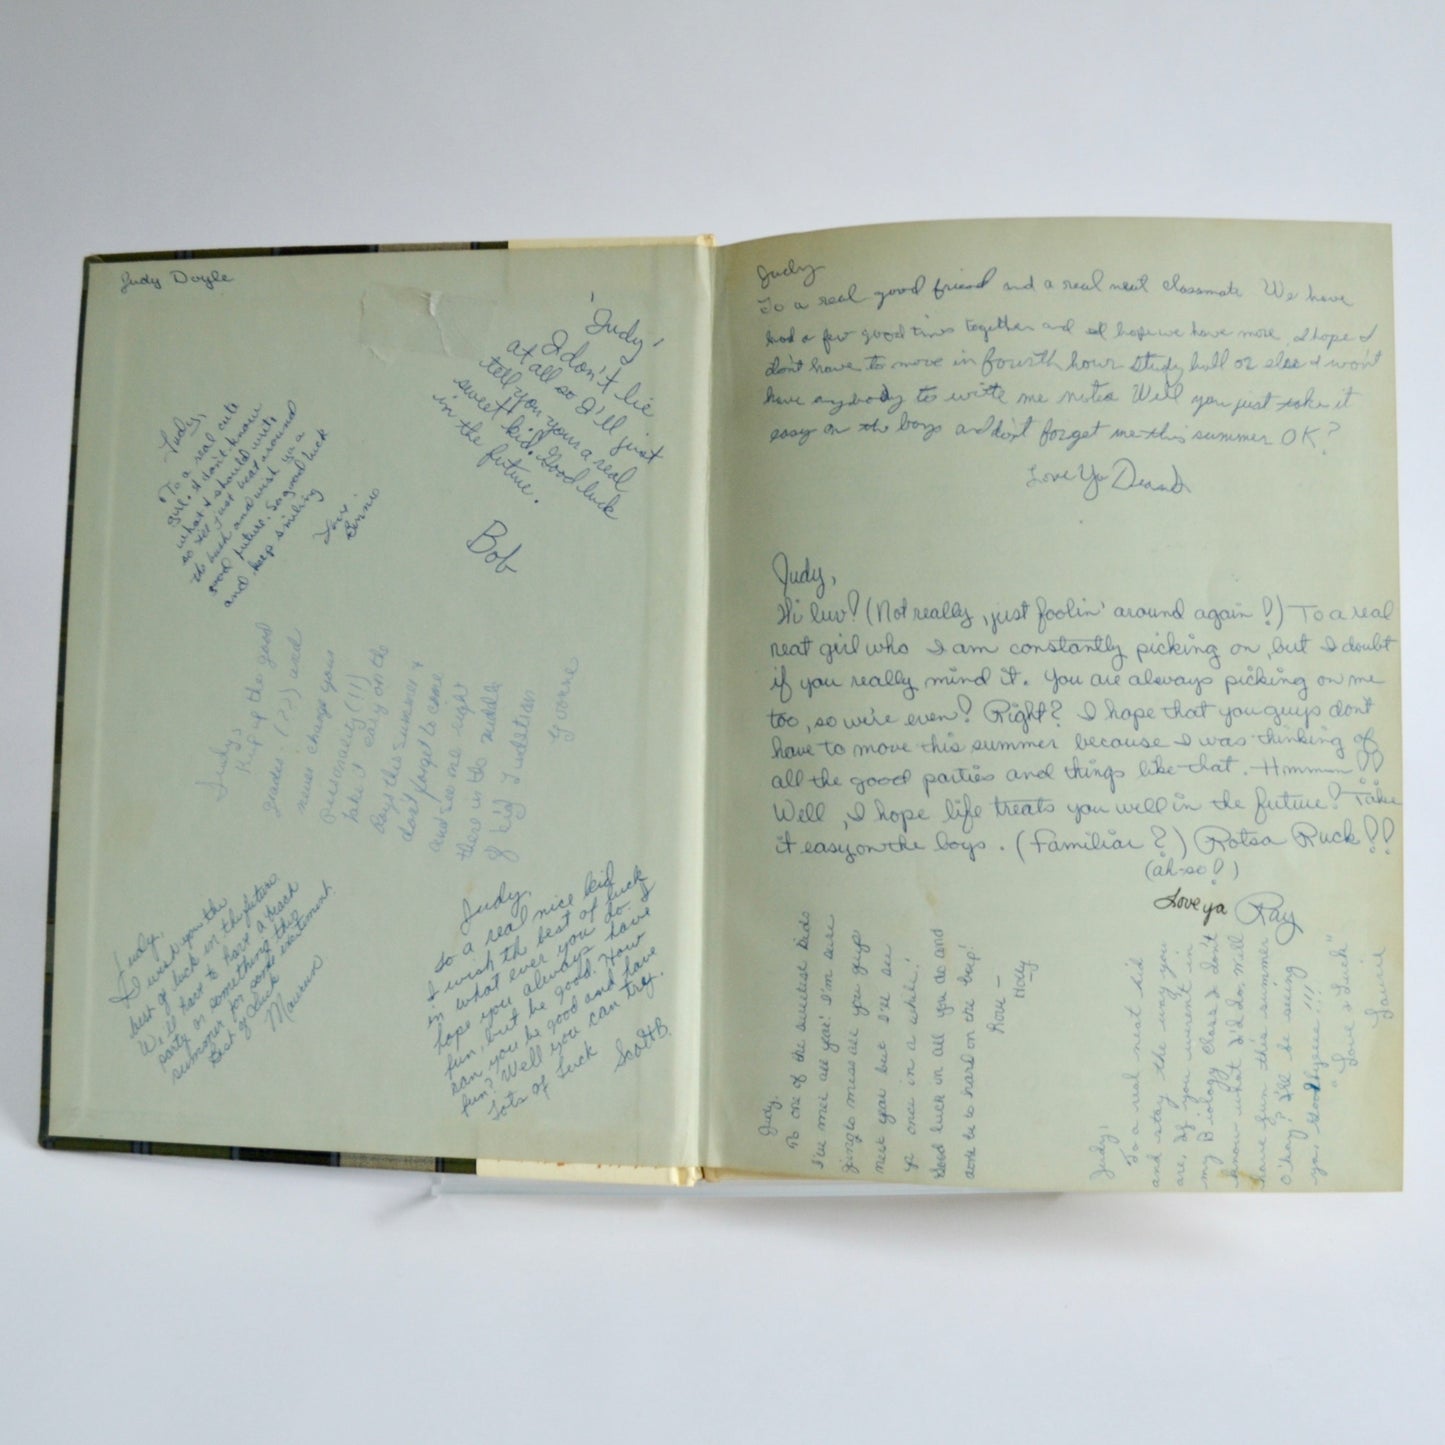 Judy Doyle
Judy,
I don't lie
at all so I'll just
tell you your a real
sweet kid. Good luck
in the future.
Bob
Judy,
"To a real cute
girl. I don't know
what I should write
so I'll just beat around
the bush and wish ya a
good future. So good luck
and keep smiling
Judy,
Keep up the good
grades. (??) and
never change your
personality (!!)
take it easy on the
boys this summer &
don't forget to come
and see me right
there in the middle
of
Yvonne
Judy,
I wish you the
best of luck in the future.
We'll have to have a beach
party or something this
summer for some excitement.
Best of luck
Maureen
Judy,
To a real nice kid
I wish the best of luck
in what ever you do. I
hope you always have
fun, but be good. How
can you be good and have
fun? Well you can try.
Lots of Luck
Scott B.
Judy
To a real good friend and a real neat classmate We have
had a few good times together and I hope we have more. I hope I
don't have to move in fourth hour study hall or else I won't
have anybody to write me notes Well you just take it
easy on the boys and don't forget me this summer OK?
Love Ya
Judy,
Hi luv! (Not really, just foolin' around again!) To a real
neat girl who I am constantly picking on, but I doubt
if you really mind it. You are always picking on me
too, so we're even! Right? I hope that you guys don't
have to move this summer because I was thinking of
all the good parties and things like that. Hmmmm!!
Well, I hope life treats you well in the future! Take
it easy on the boys. (Familiar?) Rotsa Ruck!!
(ah-so!)
Love ya Ray
Judy,
To one of the sweetest kids
I've met all year! I'm sure
going to miss all you guys
next year but I'll see
ya once in a while!
Good luck in all you do and
don't be to hard on the boys!
Love –
Holly
Judy,
To a real neat kid
and stay the way you
are, If you weren't in
my Biology class I don't
know what I'd do, Well
have fun this summer
O'kay? I'll be seeing
ya, Goodbyeee!!!
"Love & Luck"
Laurie